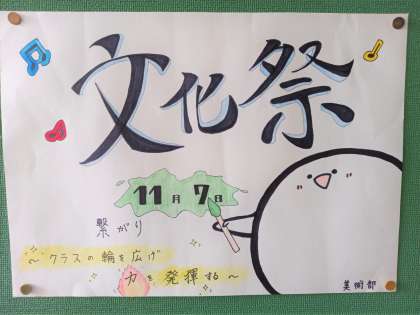 文化祭
11月7日
繋がり
～クラスの輪を広げ
力を発揮する～
美術部